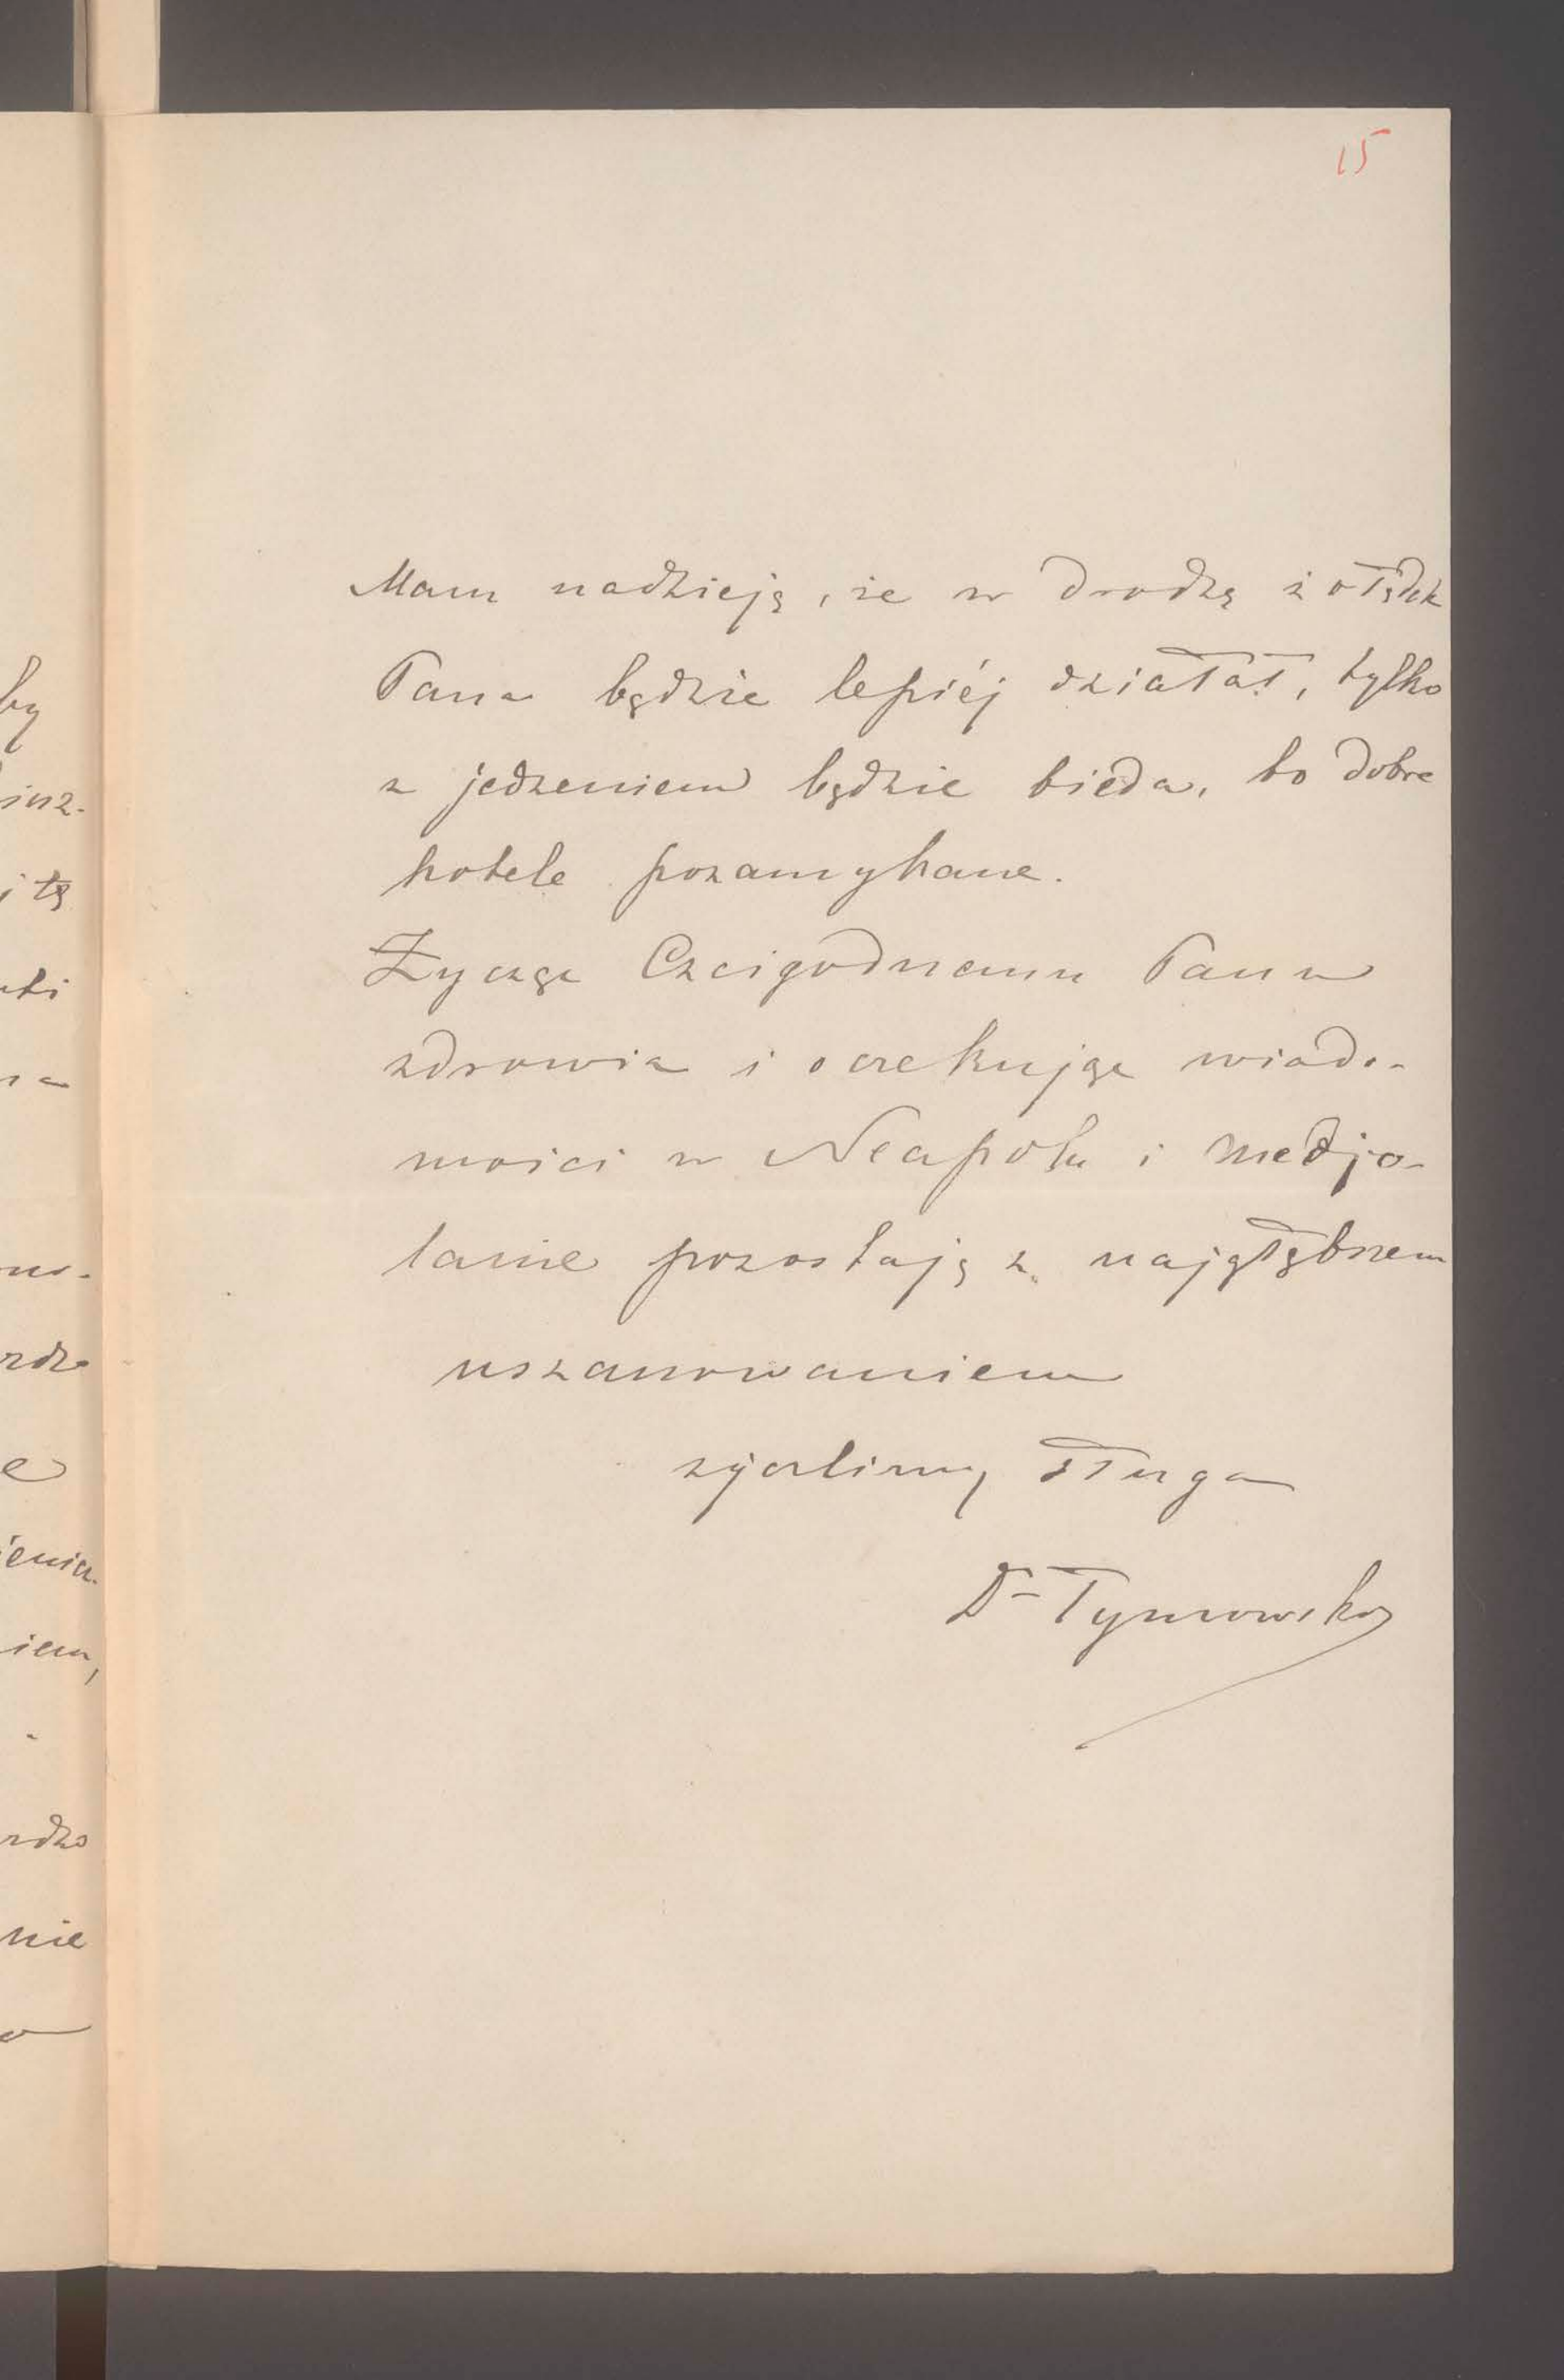 15
Mam nadzieję, że w drodzę żołądek
Pana będzie lepiéj działał, tylko
z jedzeniem będzie bieda, bo dobre
hotele pozamykane.
Życząc Czcigodnemu Panu
zdrowia i oczekując wiado-
mości w Neapolu i Medjo-
lanie pozostaję z najgłębszem
uszanowaniem
życzliwy sługa
Dr Tymowski